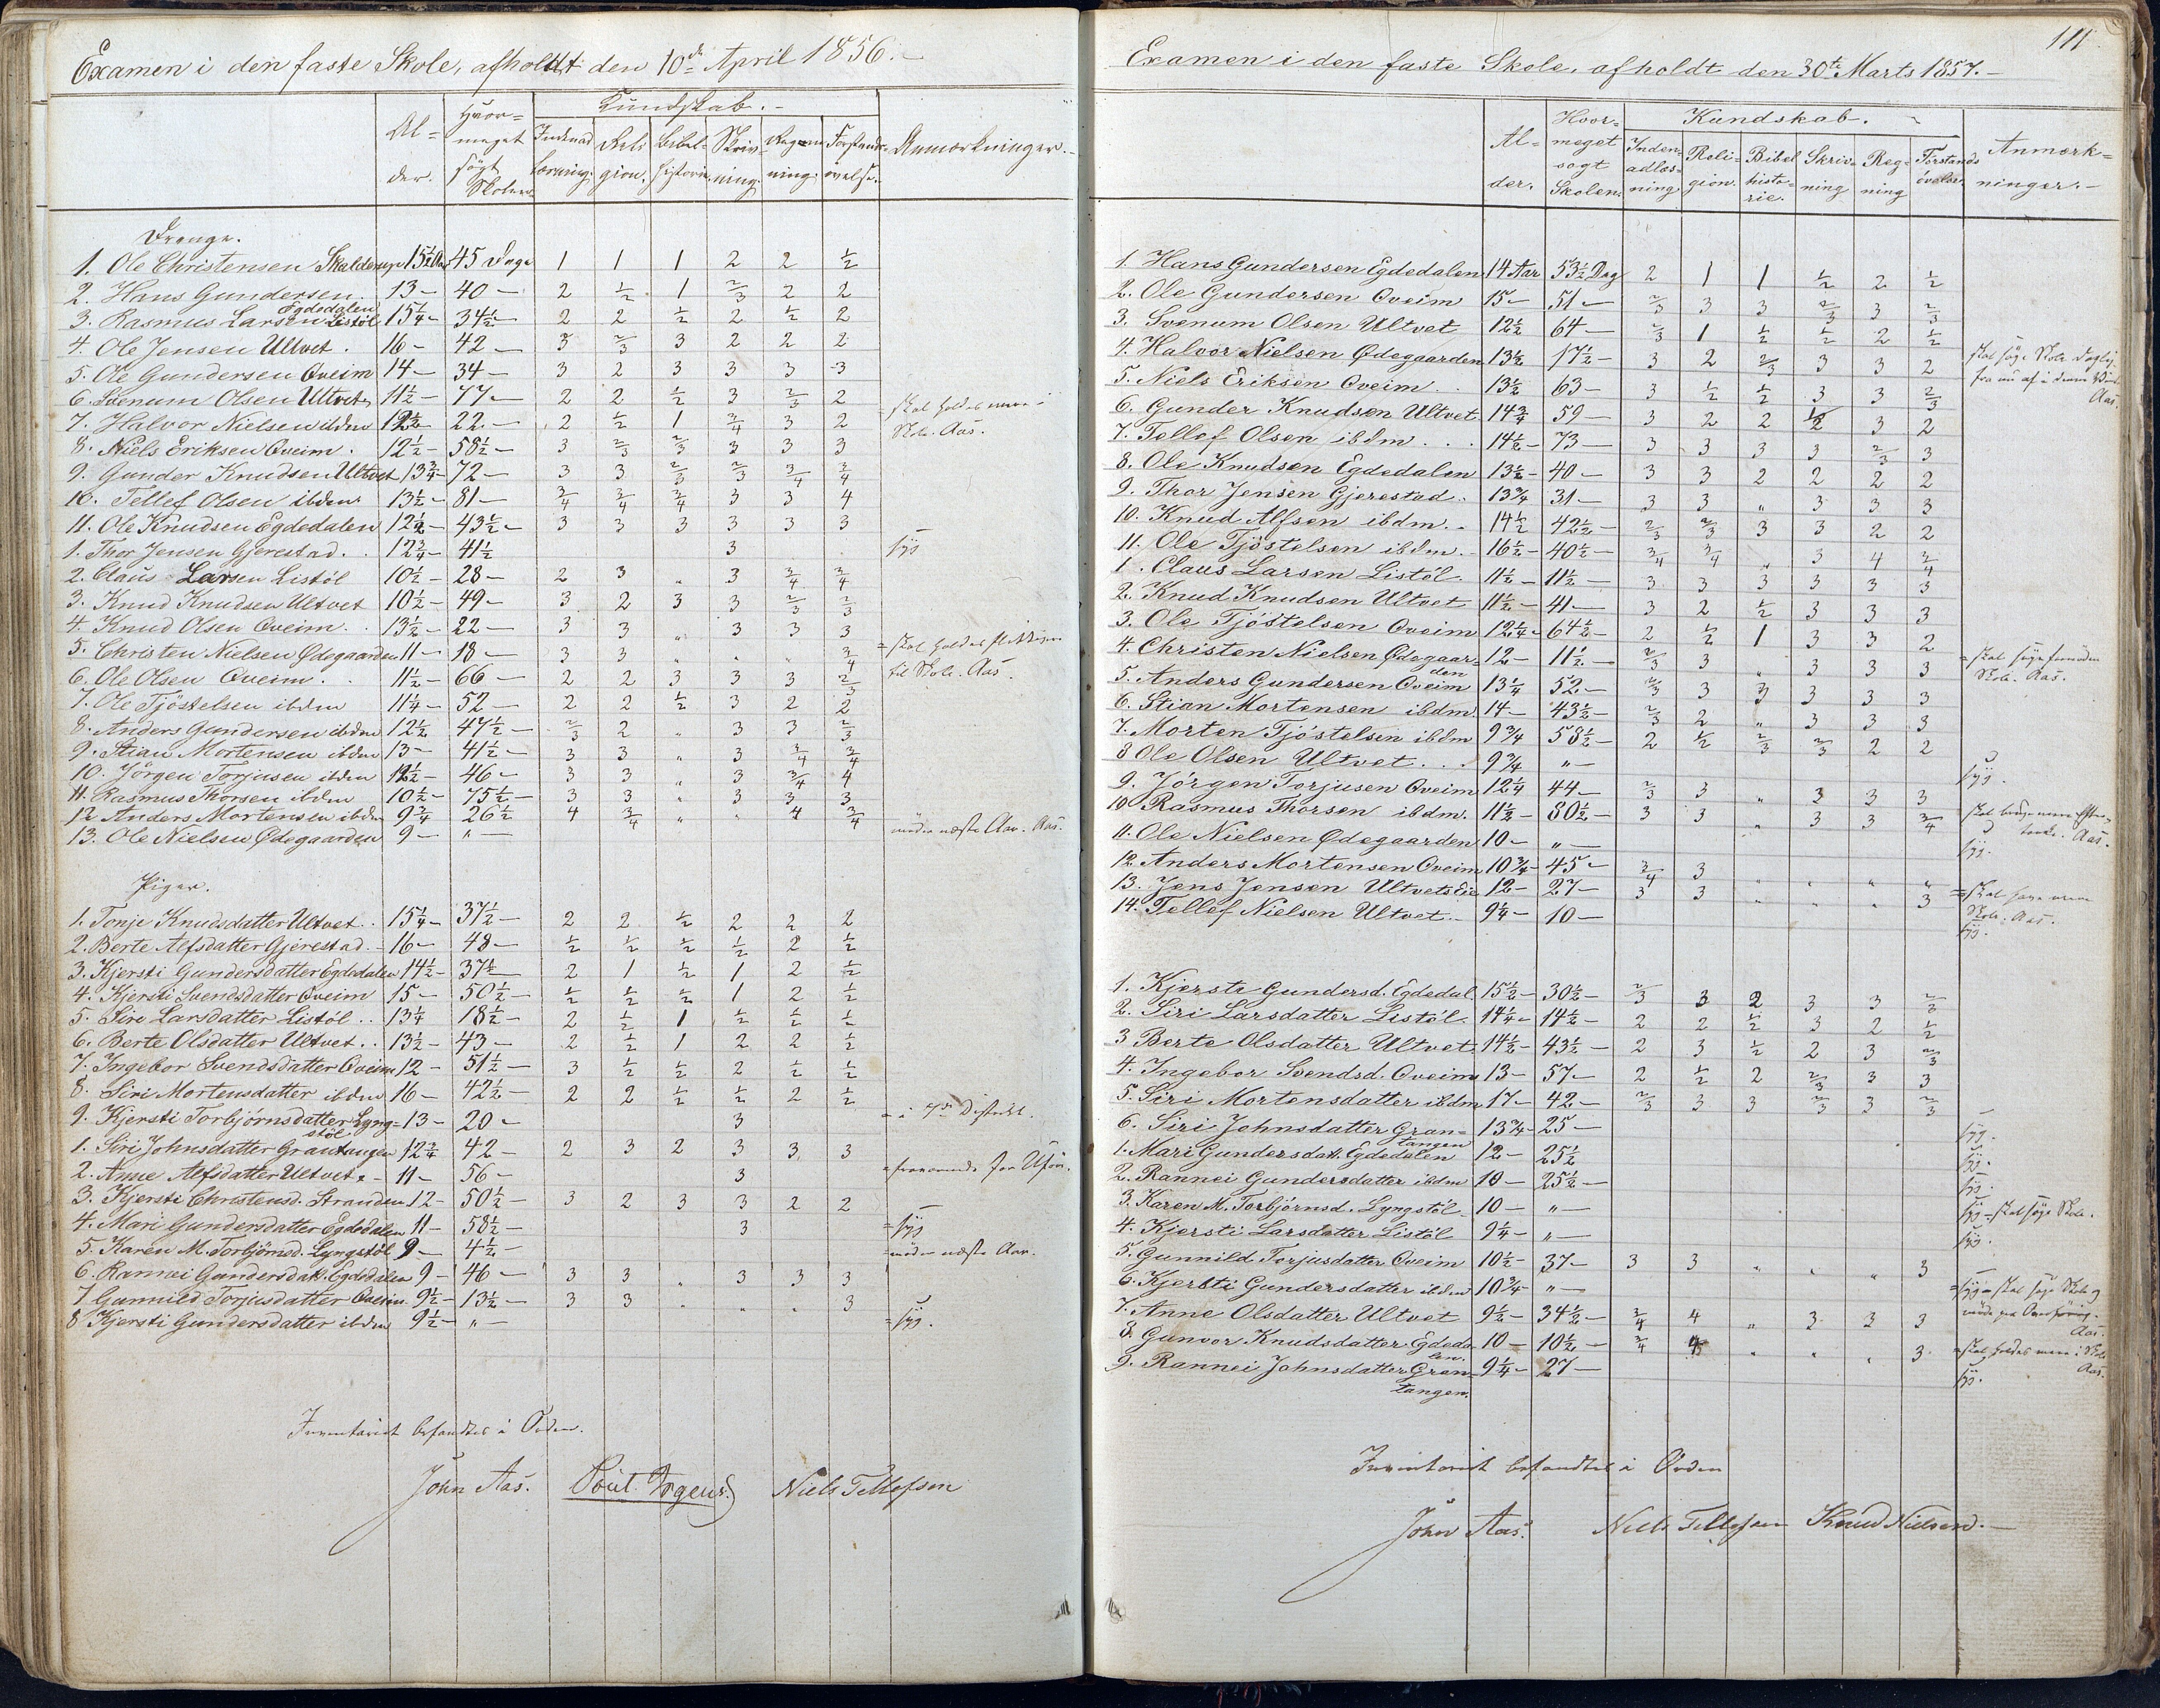 Examen i den faste Skole, afholdt den 10de April 1856.
Al=
der.
Hvor=
meget
søgt
Skolen.
Kundskab.
Indenad
læsning.
Reli
gion.
Bibel=
historie.
Skriv=
ning.
Reg=
ning.
Forstands=
øvelse.
Anmærkninger.
Drenge.
1. Ole Christensen Skalderup 15½ Aar 45 Dage 1 1 1 2 2 ½
2. Hans Gundersen Egdedalen 13 - 40 - 2 ½ 1 2/3 2 2
3. Rasmus Larsen Listöl 15¼ - 34½ - 2 2 ½ 2 ½ 2
4. Ole Jensen Ultvet. 16 - 42 - 3 2/3 3 2 2 2
5. Ole Gundersen Oveim 14 - 34 - 3 2 3 3 3 3
6. Svenum Olsen Ultvet 11½ - 77 - 2 2 ½ 3 2/3 2
7. Halvor Nielsen ibdm 12½ 22 - 2 ½ 1 3/4 3 2 = skal holdes mere i Skole. Aas.
8. Niels Eriksen Oveim. 12½ - 58½ - 3 2/3 2/3 3 3 3
9. Gunder Knudsen Ultvet 13¾ - 72 - 3 3 2/3 2/3 3/4 3/4
10. Tellef Olsen ibdm 13½ - 81 - 3/4 3/4 3/4 3 3 4
11. Ole Knudsen Egdedalen 12½ - 43½ - 3 3 3 3 3 3
1. Thor Jensen Gjerestad. 12¾ - 41½ 3 syg
2. Claus Larsen Listöl 10½ - 28 - 2 3 „ 3 3/4 3/4
3. Knud Knudsen Ultvet 10½ - 49 - 3 2 3 3 2/3 2/3
4. Knud Olsen Oveim. 13½ - 22 - 3 3 „ 3 3 3
5. Christen Nielsen Ødegaarden 11 - 18 - 3 3 „ „ „ 3/4 = skal holdes flittigere til Skole. Aas.
6. Ole Olsen Oveim. 11½ - 66 - 2 2 3 3 3 2/3
7. Ole Tjöstelsen ibdm 11¼ - 52 - 2 2 ½ 3 2 2
8. Anders Gundersen ibdm 12½ 47½ - 2/3 2 „ 3 3 2/3
9. Stian Mortensen ibdm 13 - 41½ - 3 3 „ 3 3/4 3/4
10. Jörgen Torjusen ibdm 12½ - 46 - 3 3 „ 3 3/4 4
11. Rasmus Thorsen ibdm 10½ - 75½ - 3 3 „ 3 3 3
12. Anders Mortensen ibdm 9¾ - 26½ 4 3/4 „ „ 4 3/4
13. Ole Nielsen Ødegaarden 9 - „ - møder næste Aar. Aas.
Piger.
1. Tonje Knudsdatter Ultvet. 15¼ - 37½ - 2 2 ½ 2 2 2
2. Berte Alfsdatter Gjerestad. 16 - 48 - ½ ½ ½ ½ 2 ½
3. Kjersti Gundersdatter Egdedalen 14½ - 37½ - 2 1 ½ 1 2 ½
4. Kjersti Svendsdatter Oveim 15 - 50½ - ½ ½ ½ 1 2 ½
5. Siri Larsdatter Listöl. 13¼ 18½ - 2 ½ 1 ½ ½ ½
6. Berte Olsdatter Ultvet. 13½ - 43 - 2 ½ 1 2 2 ½
7. Ingebor Svendsdatter Oveim 12 - 51½ - 3 ½ ½ 2 ½ ½
8. Siri Mortensdatter ibdm 16 - 42½ - 2 2 ½ ½ 2 ½
9. Kjersti Torbjörnsdatter Lyng=
stöl 13 - 20 - 3 = i 7de District.
1. Siri Johnsdatter Grantangen 12¾ 42 - 2 3 2 3 3 3
2. Anne Alfsdatter Ultvet. 11 - 56 - 3 = fraværende
3. Kjersti Christensd. Stranden 12 - 50½ - 3 2 3 3 2 2
4. Mari Gundersdatter Egdedalen 11 - 58½ - 3 = syg
5. Karen M. Torbjörnsd. Lyngstöl 9 - 4½ - = møder næste Aar.
6. Rannei Gundersdatt. Egdedalen 9 - 46 - 3 3 „ 3 3 3
7. Gunnild Torjusdatter Oveim. 9½ - 13½ - 3 3 „ „ „ 3
8. Kjersti Gundersdatter ibdm 9½ - „ - = syg.
Inventariet befandtes i Orden.
John Aas. Niels Tellefsen
111.
Examen i den faste Skole, afholdt den 30te Marts 1857.
Al=
der.
Hvor=
meget
søgt
Skolen.
Kundskab.
Inden=
adlæs=
ning
Reli=
gion.
Bibel
histo=
rie.
Skriv=
ning
Reg=
ning
Forstands
övelse.
Anmærk=
ninger.
1. Hans Gundersen Egdedalen 14 Aar 53½ Dag 2 1 1 ½ 2 ½
2. Ole Gundersen Oveim 15 - 51 - 2/3 3 3 2/3 3 2/3
3. Svenum Olsen Ultvet 12½ 64 - 2/3 1 ½ ½ 2 ½
4. Halvor Nielsen Ødegaarden 13½ 17½ - 3 2 2/3 3 3 2 skal søge Skole daglig fra nu af Aas
5. Niels Eriksen Oveim. 13½ 63 - 3 ½ ½ 3 3 2/3
6. Gunder Knudsen Ultvet 14¾ 59 - 3 2 2 ½ 3 2
7. Tellef Olsen ibdm. 14½ - 73 - 3 3 3 3 2/3 3
8. Ole Knudsen Egdedalen 13½ - 40 - 3 3 2 2 2 2
9. Thor Jensen Gjerestad. 13¾ 31 - 3 3 „ 3 3 3
10. Knud Alfsen ibdm. 14½ 42½ - 2/3 2/3 3 3 2 2
11. Ole Tjöstelsen ibdm. 16½ - 40½ - 3/4 3/4 „ 3 4 3/4
1. Claus Larsen Listöl. 11½ - 11½ - 3 3 3 3 3 3
2. Knud Knudsen Ultvet 11½ - 41 - 3 2 ½ 3 3 3
3. Ole Tjöstelsen Oveim 12¼ - 64½ - 2 ½ 1 3 3 2
4. Christen Nielsen Ødegaar=
den 12 - 11½ - 2/3 3 „ 3 3 3 = skal søge Skole. Aas.
5. Anders Gundersen Oveim 13¼ 52 - 2/3 3 3 3 3 3
6. Stian Mortensen ibdm. 14 - 43½ - 2/3 2 „ 3 3 3
7. Morten Tjöstelsen ibdm 9¾ 58½ - 2 ½ 2/3 2/3 2 2
8. Ole Olsen Ultvet. 9¾ „ - syg.
9. Jörgen Torjusen Oveim 12¼ 44 - 2/3 3 „ 3 3 3
10. Rasmus Thorsen ibdm. 11½ - 80½ - 3 3 „ 3 3 3/4 skal bruge mere Efter=
tanke. Aas.
11. Ole Nielsen Ødegaarden 10 - „ - syg.
12. Anders Mortensen Oveim 10¾ - 45 - 3/4 3 „ „ „ „
13. Jens Jensen Ultvets Eie 12 - 27 - 3 3 „ „ „ 3 = skal søge mere Skole. Aas.
14. Tellef Nielsen Ultvet. 9¼ - 10 - syg.
1. Kjersti Gundersd. Egdedal. 15½ - 30½ - 2/3 3 2 3 3 2/3
2. Siri Larsdatter Listöl. 14¼ - 14½ - 2 2 ½ 3 2 ½
3. Berte Olsdatter Ultvet. 14½ - 43½ - 2 3 ½ 2 3 2/3
4. Ingebor Svendsd. Oveim 13 - 57 - 2 ½ 2 2/3 3 3
5. Siri Mortensdatter ibdm 17 - 42 - 2/3 3 3 2/3 3 2/3
6. Siri Johnsdatter Gran=
tangen 13¾ - 25 - syg.
1. Mari Gundersdatt. Egdedalen 12 - 25½ syg.
2. Rannei Gundersdatter ibdm 10 - 25½ - syg.
3. Karen M. Torbjörnsd. Lyngstöl 10 - „ - syg - skal søge Skole.
4. Kjersti Larsdatter Listöl 9¼ - „ - syg.
5. Gunnild Torjusdatter Oveim 10½ - 37 - 3 3 „ „ „ 3
6. Kjersti Gundersdatter ibdm 10¾ - „ - = syg - skal søge Skole og Aas.
7. Anne Olsdatter Ultvet 9½ - 34½ - 3/4 4 „ 3 3 3
8. Gunvor Knudsdatter Egdeda
len. 10 - 10½ - 3/4 4 „ „ „ 3 = skal holdes mere i Skole Aas.
9. Rannei Johnsdatter Gran=
tangen. 9¼ - 27 - syg.
Inventariet befandtes i Orden
John Aas. Niels Tellefsen Knud Nielsen.